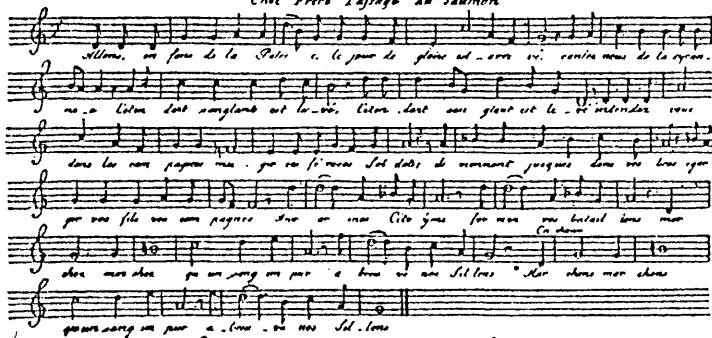 Chez Frere Passage du Saumon
Allons, en fans de la Patri e. le jour de gloire est arri vé. contre nous de la tyran-
ni-e L'éten dart sanglant est le-vé, L'éten-dart san glant est le-vé entendez vous
dans les cam pagnes mu-gir ces fé roces Sol dats, ils viennent jusques dans vos bras égor
ger vos fils vos com pagnes Aux ar mes Cito yens for mez vos batail lons mar
En chœur
chez mar chez qu un sang im pur a breu ve nos Sillons Mar chons mar chons
qu'un sang im pur a-breu-ve nos Sil-lons